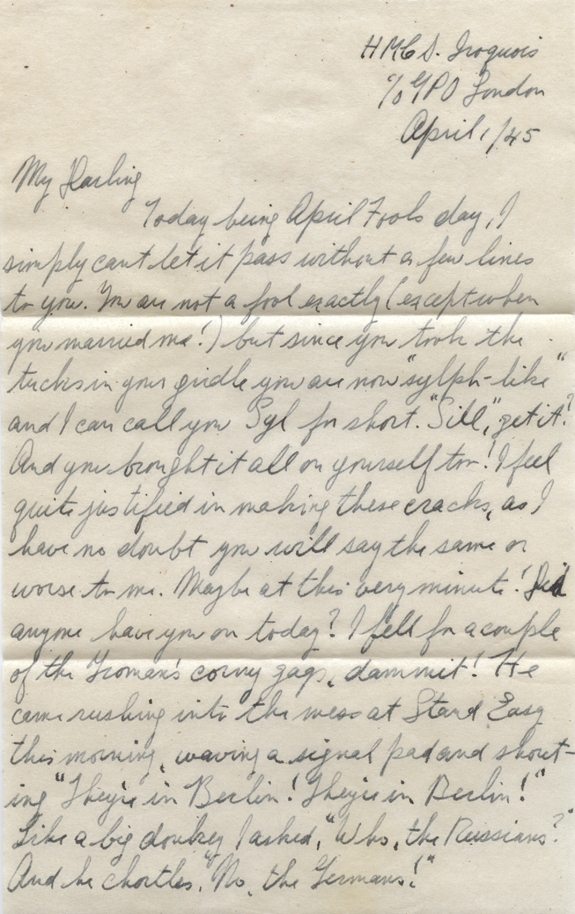 HMCS. Iroquois
℅ GPO London
April 1/45
My Darling
Today being April Fools day, I
simply can't let it pass without a few lines
to you. You are not a fool exactly (except when
you married me!) but since you took the
tucks in your girdle you are now "sylph-like"
and I can call you Syl for short. "Sill", get it?
And you brought it all on yourself too! I feel
quite justified in making these cracks, as I
have no doubt you will say the same or
worse to me. Maybe at this very minute! Did
anyone have you on today? I fell for a couple
of the Yroman's corny gags, dammit! He
came rushing into the mess at Stand Easy
this morning, waving a signal pad and shout-
ing "They're in Berlin! They're in Berlin!"
Like a big donkey I asked, "Who, the Russians?"
And he chortles, "No, the Germans!"